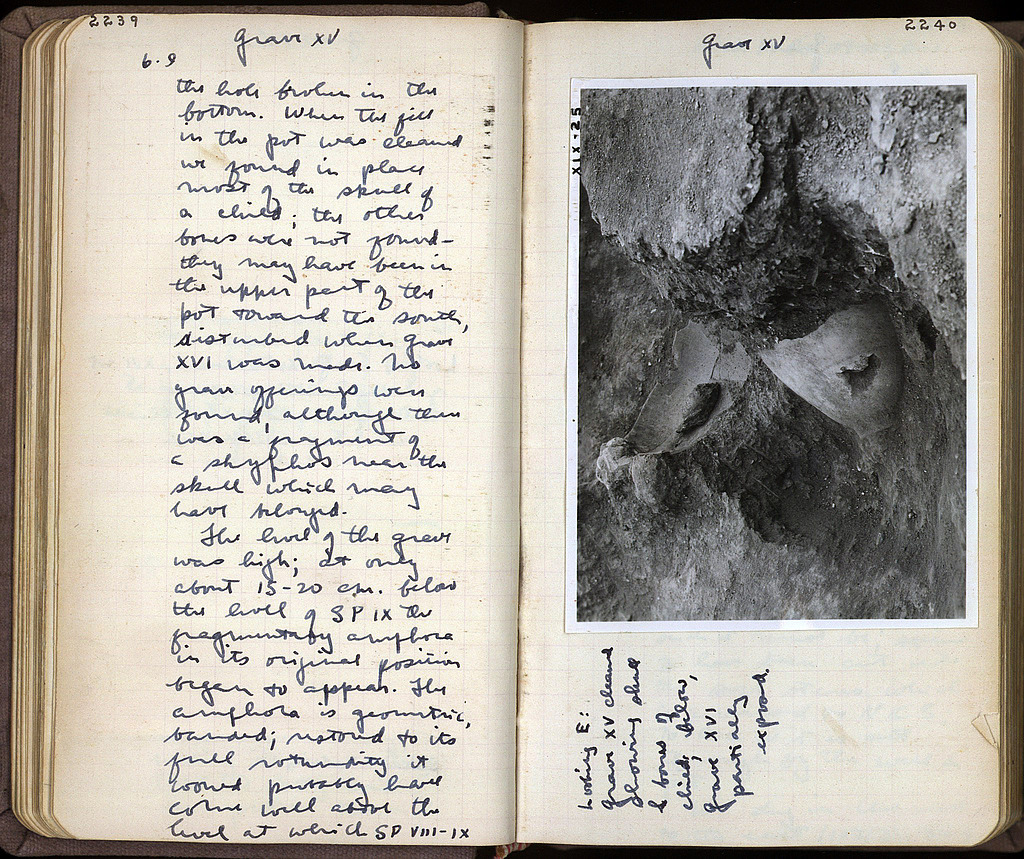 2239
Grave XV
6.9
the hole broken in the
bottom. When the fill
in the pot was cleaned
we found in place
most of the skull of
a child; the other
bones were not found –
they may have been in
the upper part of the
pot toward the south,
disturbed when grave
XVI was made. No
grave offerings were
found, although there
was a fragment of
a skyphos near the
skull which may
have belonged.
The level of the grave
was high; at only
about 15-20 cm. below
the level of SP IX the
fragmentary amphora
in its original position
began to appear. The
amphora is geometric,
banded; restored to its
full rotundity it
would probably have
come well above the
level at which SP VIII-IX
2240
Grave XV
XIX-25
Looking E:
grave XV cleaned
showing skull
& bones of
child; below,
grave XVI
partially
exposed.